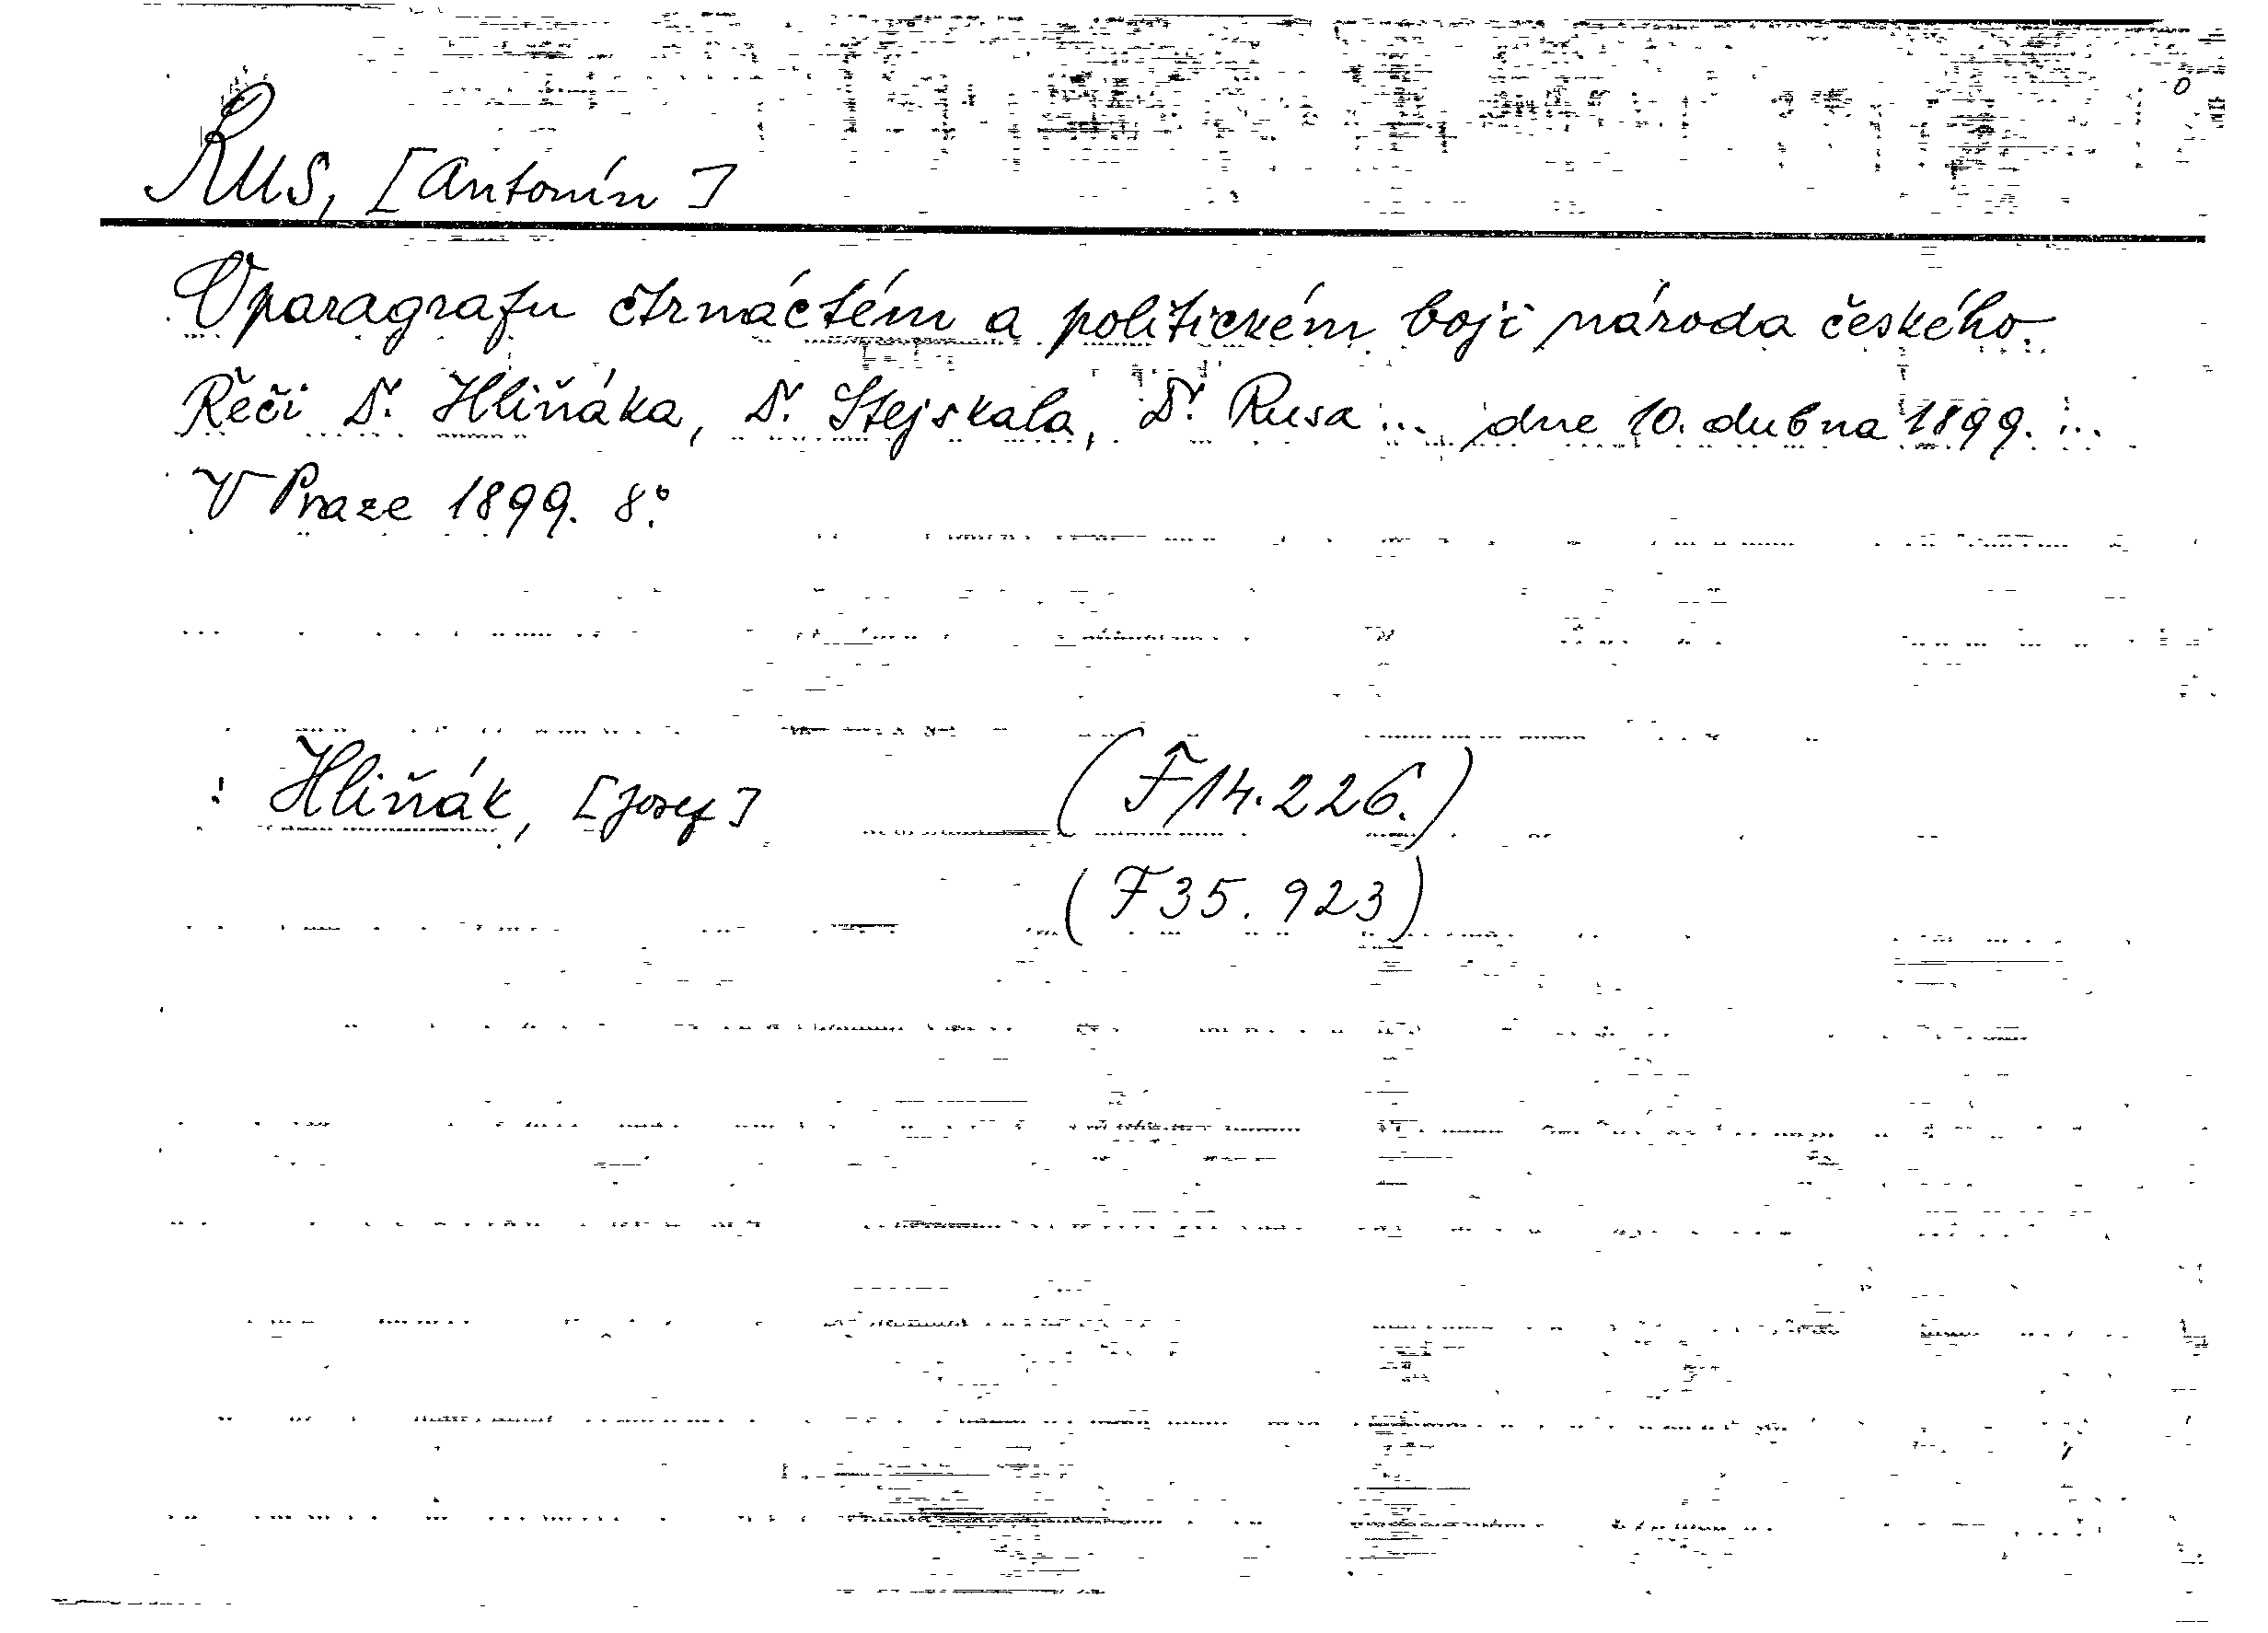 Rus, [Antonín]
O paragrafu čtrnáctém a politickém boji národa českého.
Řeči Dr. Hliňáka, Dr. Stejskala, Dr. Rusa... dne 10. dubna 1899. ...
V Praze 1899. 8.°
: Hliňák, [Josef] (F 14.226.)
(F 35.923)